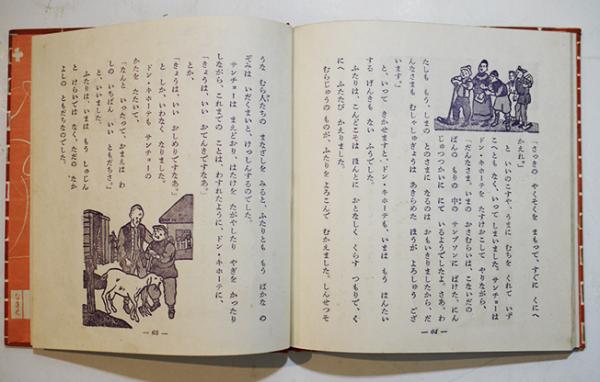 「さっきの やくそくを まもって、すぐに くにへ
かえれ。」
と、いいのこすや、うまに むちを くれて いず
こへともなく、いって しまいました。サンチョーは
ドン・キホーテを たすけおこして やりながら、
「だんなさま。いまの おさむらいは、こないだの
ばんの もりの 中の サンプソンに ばけた、にん
じゅつつかいに にて いるようでしたよ。さあ、わ
たしも もう、しまの とのさまに なるのは おもいきりましたから、だ
んなさまも むしゃしゅぎょうは あきらめた ほうが よろしゅう ござ
います。」
と、いって きかせますと、ドン・キホーテも、いまは もう はんたい
する げんきも ない ふうでした。
ふたりは、こんどこそは ほんとに おとなしく くらす つもりで、く
にへ ふたたび かえりました。
むらじゅうの ものが、ふたりを よろこんで むかえました。しんせつそ
— 64 —
うな むら人たちの まなざしを みると、ふたりとも もう ばかな の
ぞみは いだくまいと、けっしんするのでした。
サンチョーは まえどおり、はたけを たがやしたり やぎを かったり
しながら、これまでの ことは、わすれたように、ドン・キホーテに、
「きょうは、いい おてんきですなあ。」
とか、
「きょうは、いい おしめりですなあ。」
と しか、いわなく なりました。
ドン・キホーテも サンチョーの
かたを たたいて、
「なんと いったって、おまえは わ
しの いちばん いい ともだちさ。」
と、いいました。
ふたりは、いまは もう しゅじん
と けらいでは なく、ただの なか
よしの ともだちなのでした。
— 65 —